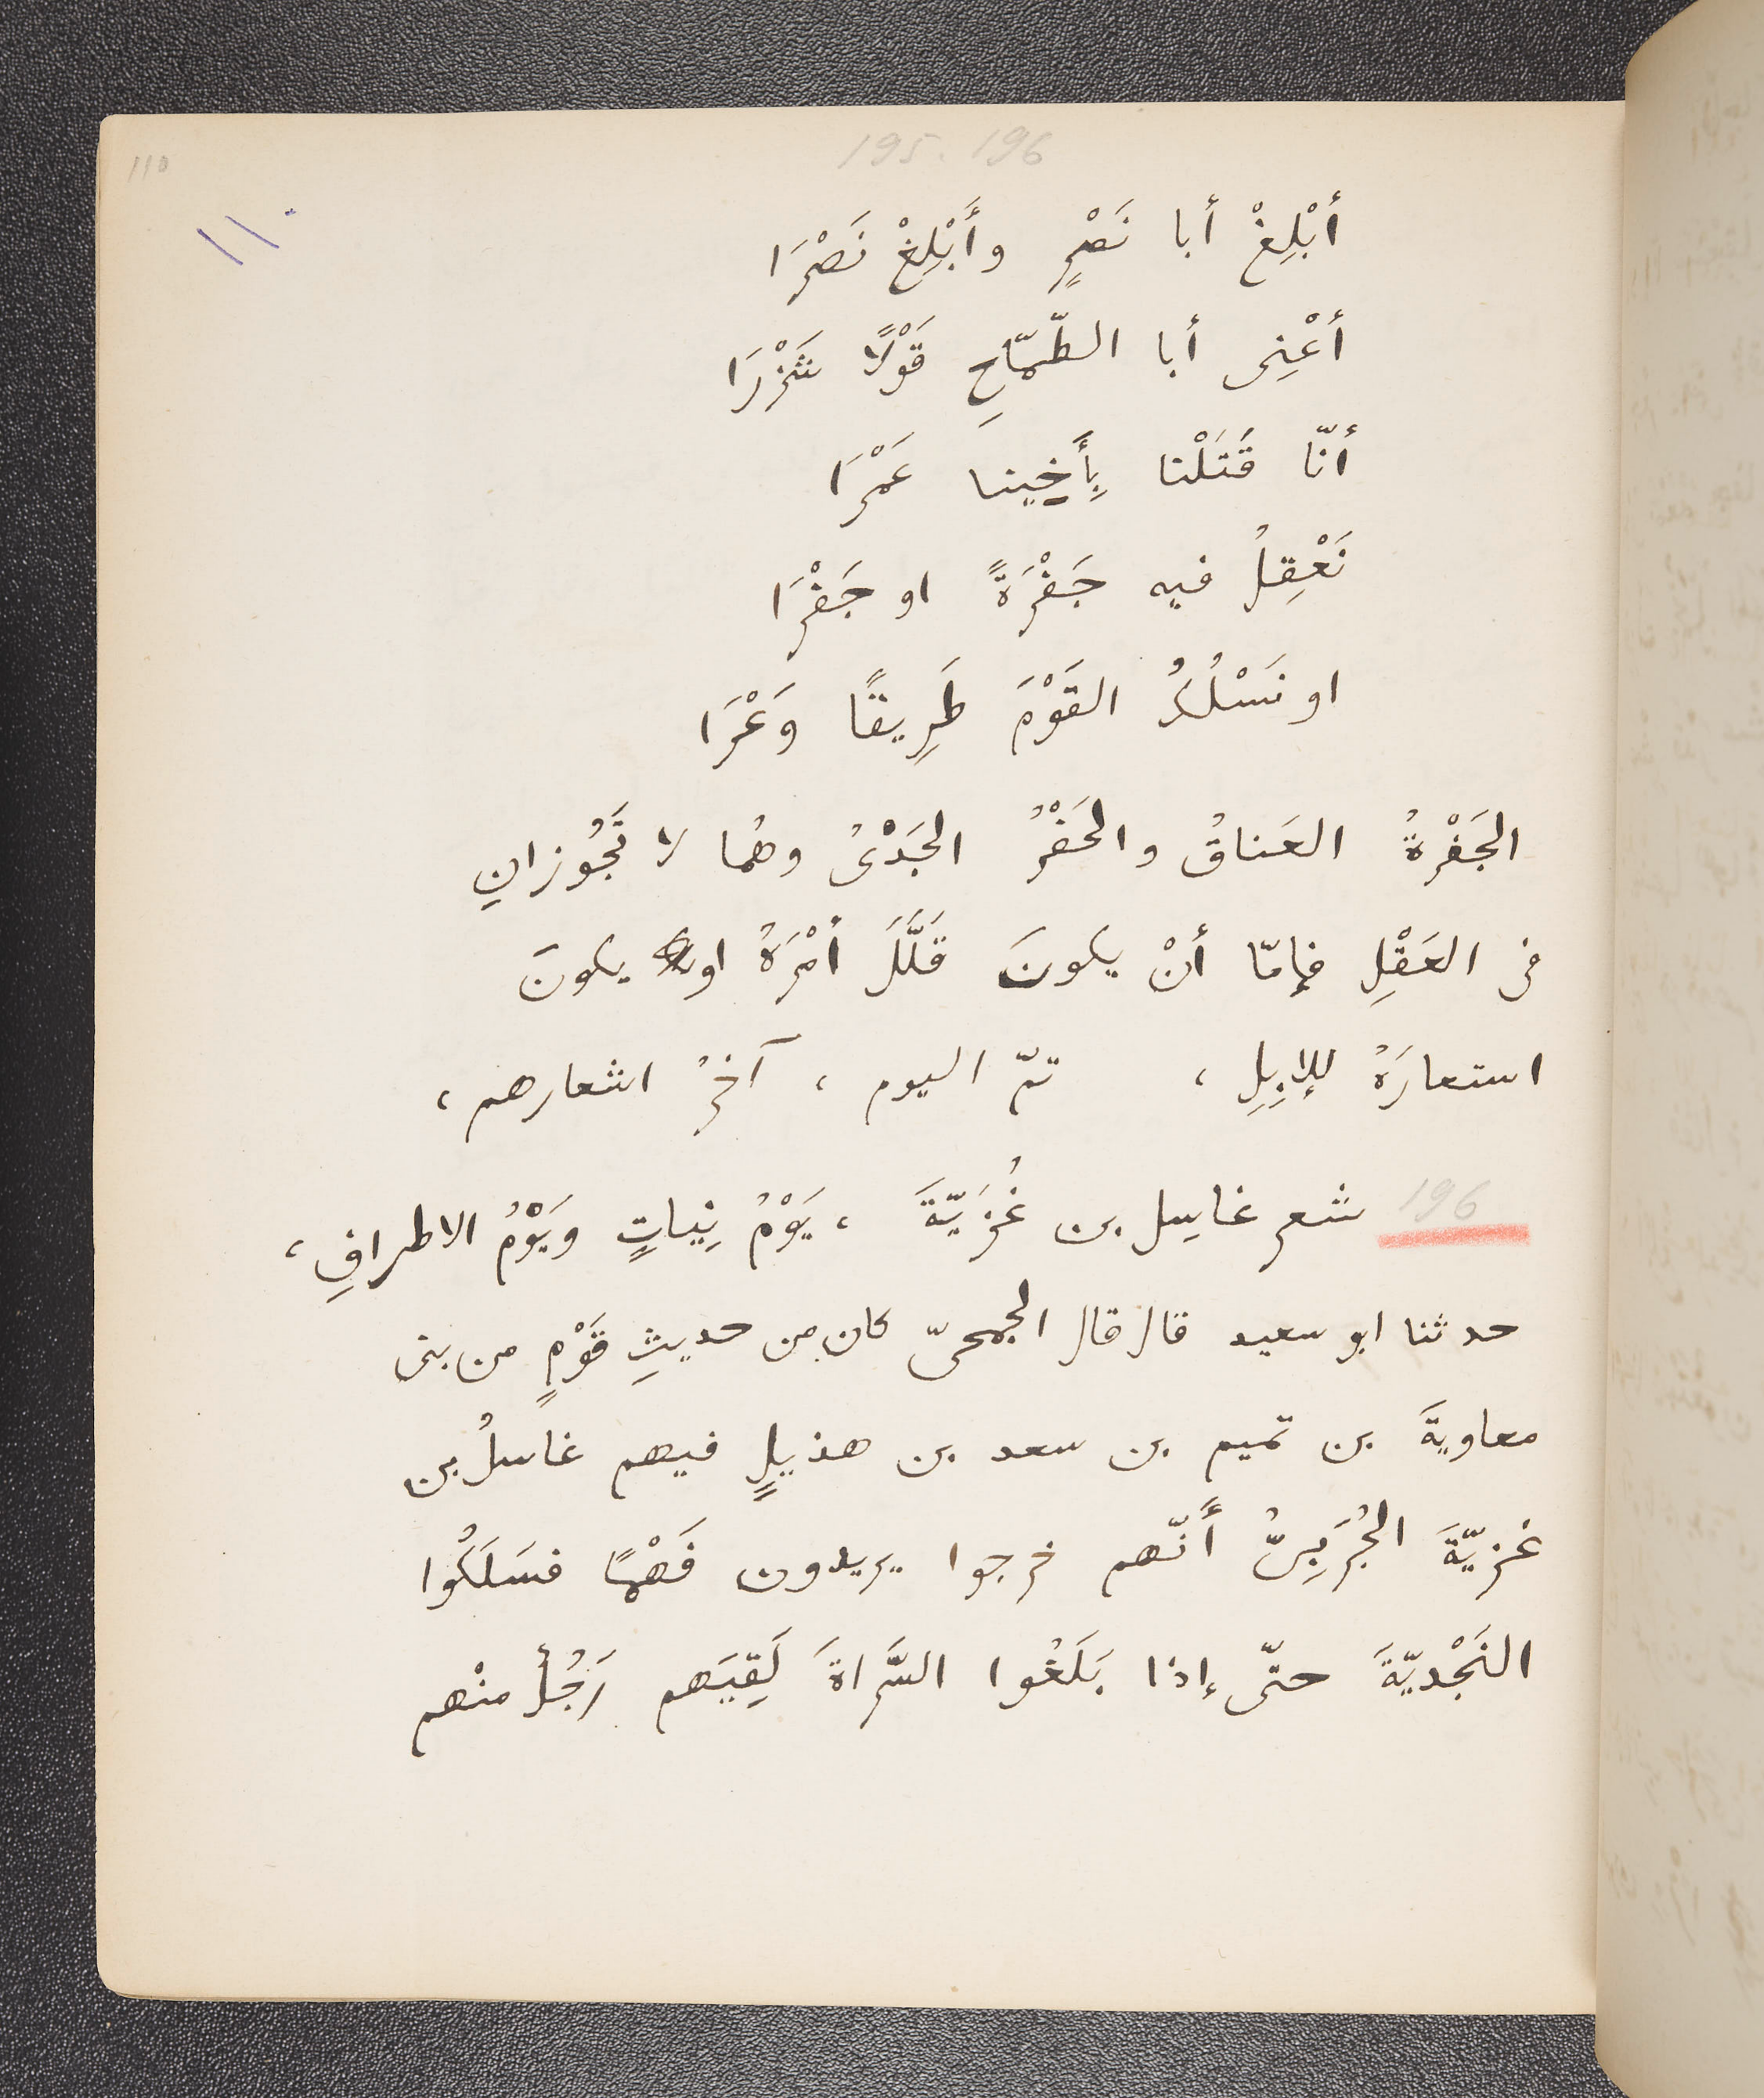 195. 196
110
١١٠
أبْلِغْ أبا نَصْرٍ وأَبْلِغْ نَصْرَا
أعْنِى أبا الطّمّاحِ قَوْلًا شَزْرَا
أنّا قَتَلْنا بِأَخِينا عَمْرَا
نَعْقِلُ فيه جَفْرَةً او جَفْرَا
او نَسْلُكُ القَوْمَ طَرِيقًا وَعْرَا
الجَفْرةُ العَناقُ والجَفْرُ الجَدْىُ وهُما لا تَجُوزانِ
فى العَقْلِ فإمّا أنْ يكونَ قَلَّلَ أمْرَهُ او يكونَ
استعارَهُ للإبِلِ ، تمّ اليوم ، آخرُ اشعارهم ،
196 شعر غاسِل بن غُزَيّةَ ، يَوْمُ نِيباتٍ ويَوْمُ الاطرافِ ،
حدثنا ابو سعيد قال قال الجمحىّ كان من حديثِ قَوْمٍ من بنى
معاويةَ بن تميم بن سعد بن هذيلٍ فيهم غاسلُ بن
غزيّةَ الجُرَبِىُّ أَنّهم خرجوا يريدون فَهْمًا فسَلَكُوا
النَجْديّةَ حتّى إذا بَلَغُوا السَّراةَ لَقِيَهم رَجُلٌ منْهم